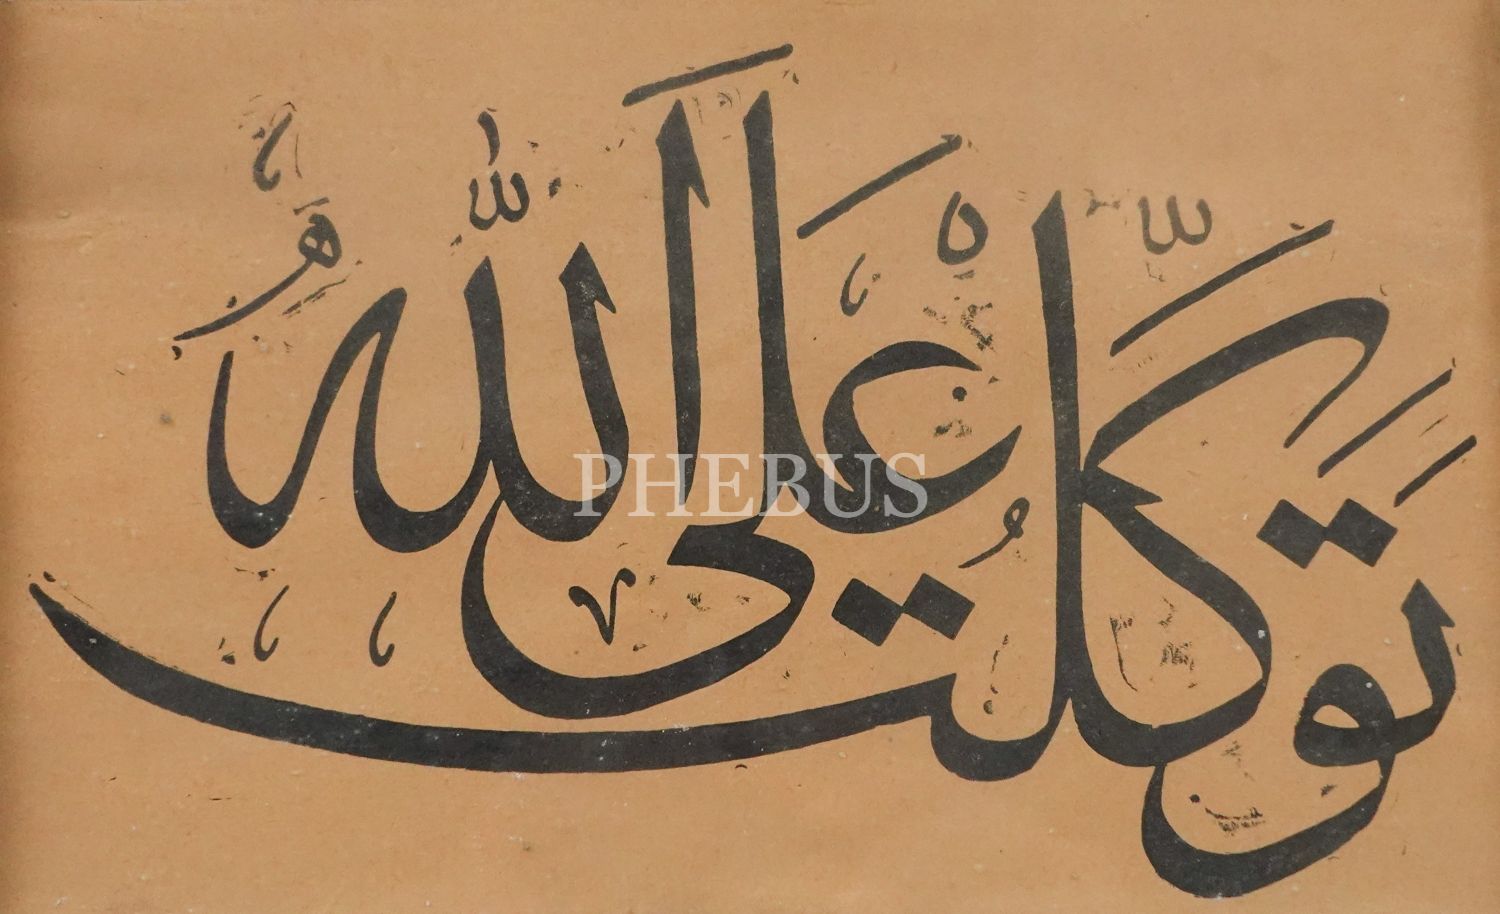 تَوَكَّلْتُ عَلَى اللّٰه
PHEBUS